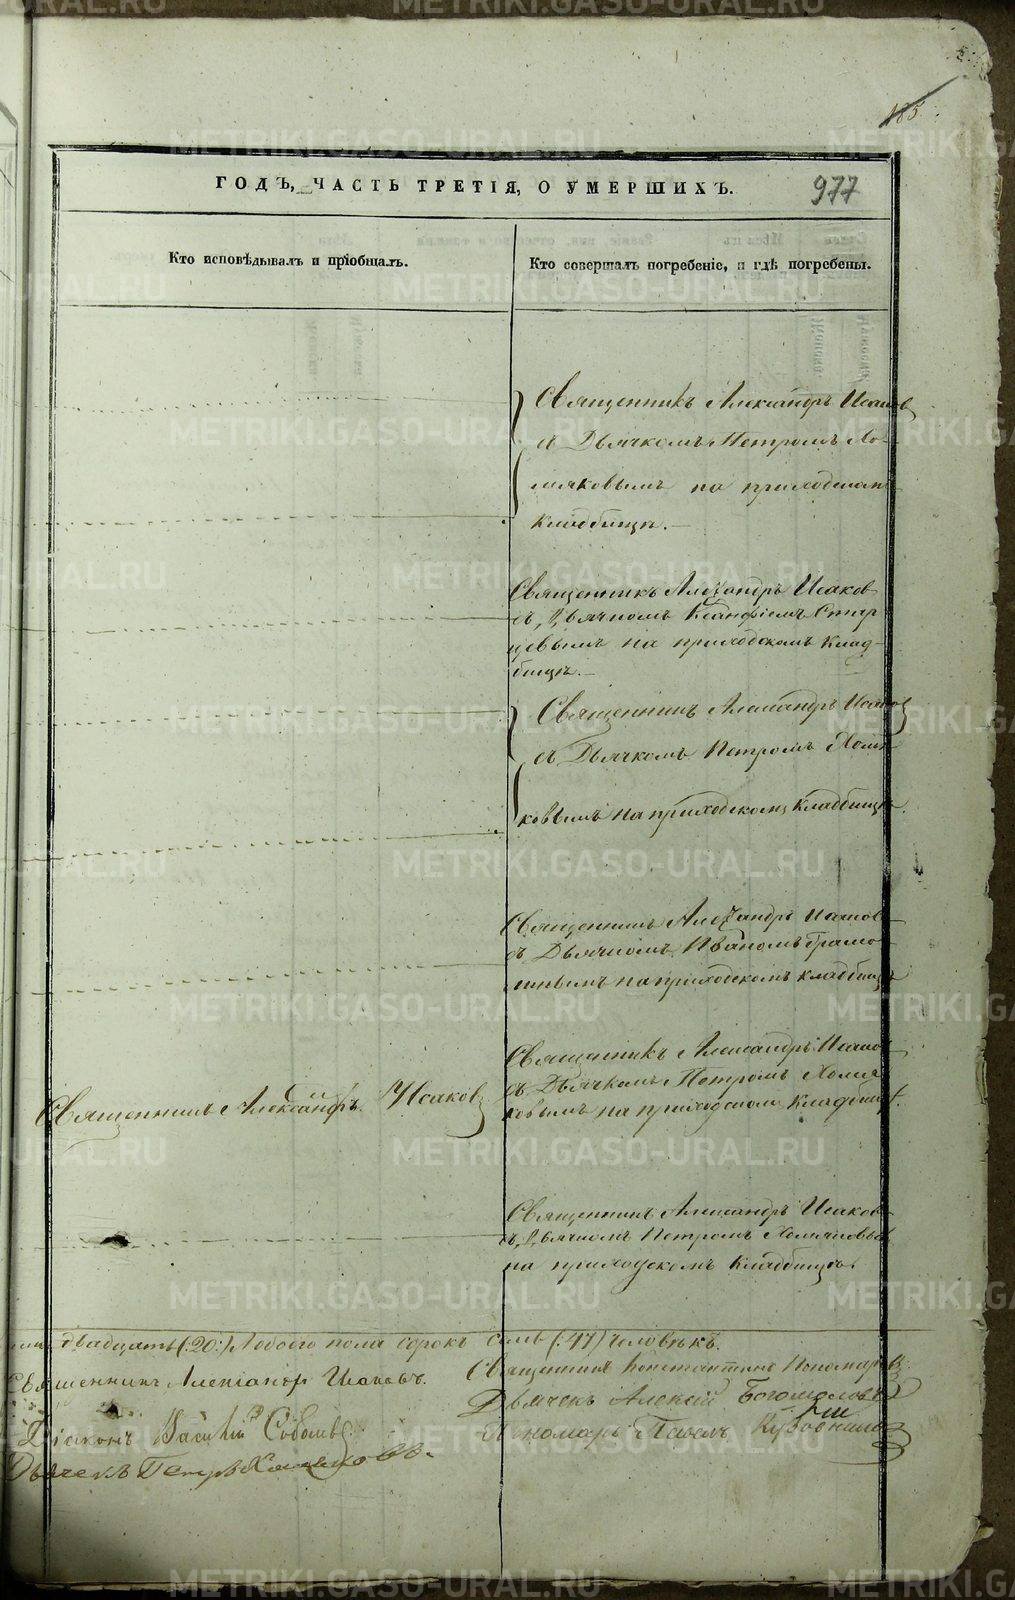 185
ГОДЪ, ЧАСТЬ ТРЕТІЯ, О УМЕРШИХЪ.
977
Кто исповѣдывалъ и пріобщалъ.
Кто совершалъ погребеніе, и гдѣ погребены.
Священникъ Александръ Исаковъ
съ Дьячкомъ Петромъ Хо-
мяковымъ на приходскомъ
кладбищѣ.
Священникъ Александръ Исаков
съ Дьячкомъ Ксанфіемъ Стар
цевымъ на приходскомъ клад-
бищѣ.
Священникъ Александръ Исаков
съ Дьячкомъ Петромъ Хомя
ковымъ на приходскомъ кладбищѣ
Священникъ Александръ Исаков
съ Дьячкомъ Иваномъ
на приходскомъ кладбищѣ
Священникъ Александръ Исаковъ
Священникъ Александръ Исаков
съ Дьячкомъ Петромъ Хомя
ковымъ на приходскомъ кладбищѣ.
Священникъ Александръ Исаков
съ Дьячкомъ Петромъ Хомяковым
на приходскомъ кладбищѣ
двадцать (:20:) Обоего пола сорокъ семь (:47) человѣкъ.
Священникъ Александръ Исаковъ.
Священникъ Константинъ Пономарев
Дьячекъ Алексій Богомолов
Діаконъ Василій
Пономарь Павелъ
Дьячекъ Петръ Хомяковъ.
METRIKI.GASO-URAL.RU